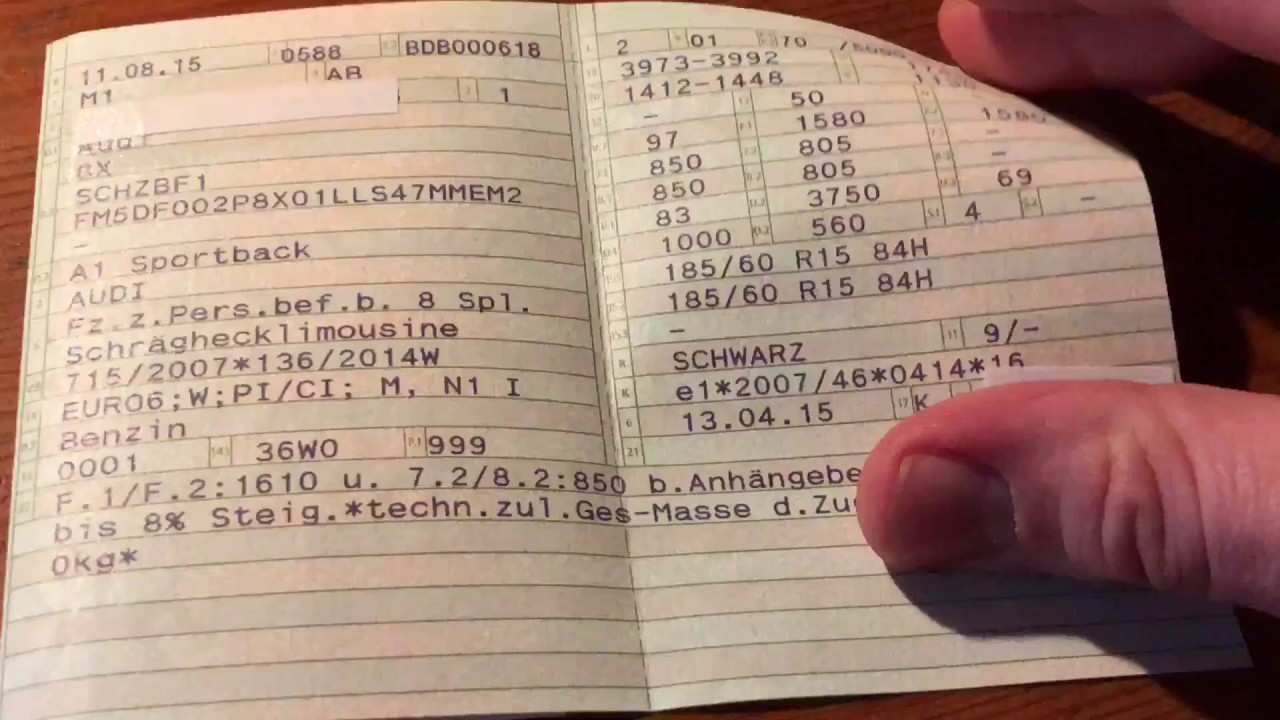 11.08.15 0588 BDB000618
M1 AB
1
8X
SCHZBF1
FM5DF002P8X01LLS47MMEM2
–
A1 Sportback
AUDI
Fz.z.Pers.bef.b. 8 Spl.
Schräghecklimousine
715/2007*136/2014W
EURO6;W;PI/CI; M, N1 I
Benzin
0001 36W0 999
2 01 70
3973-3992
1412-1448
– 50
97 1580 1580
850 805 –
850 805 –
83 3750 69
1000 560 4 –
185/60 R15 84H
185/60 R15 84H
–
SCHWARZ 9/-
e1*2007/46*0414*16
13.04.15 K
F.1/F.2:1610 u. 7.2/8.2:850 b.Anhängebe
bis 8% Steig.*techn.zul.Ges-Masse d.Zu
0kg*